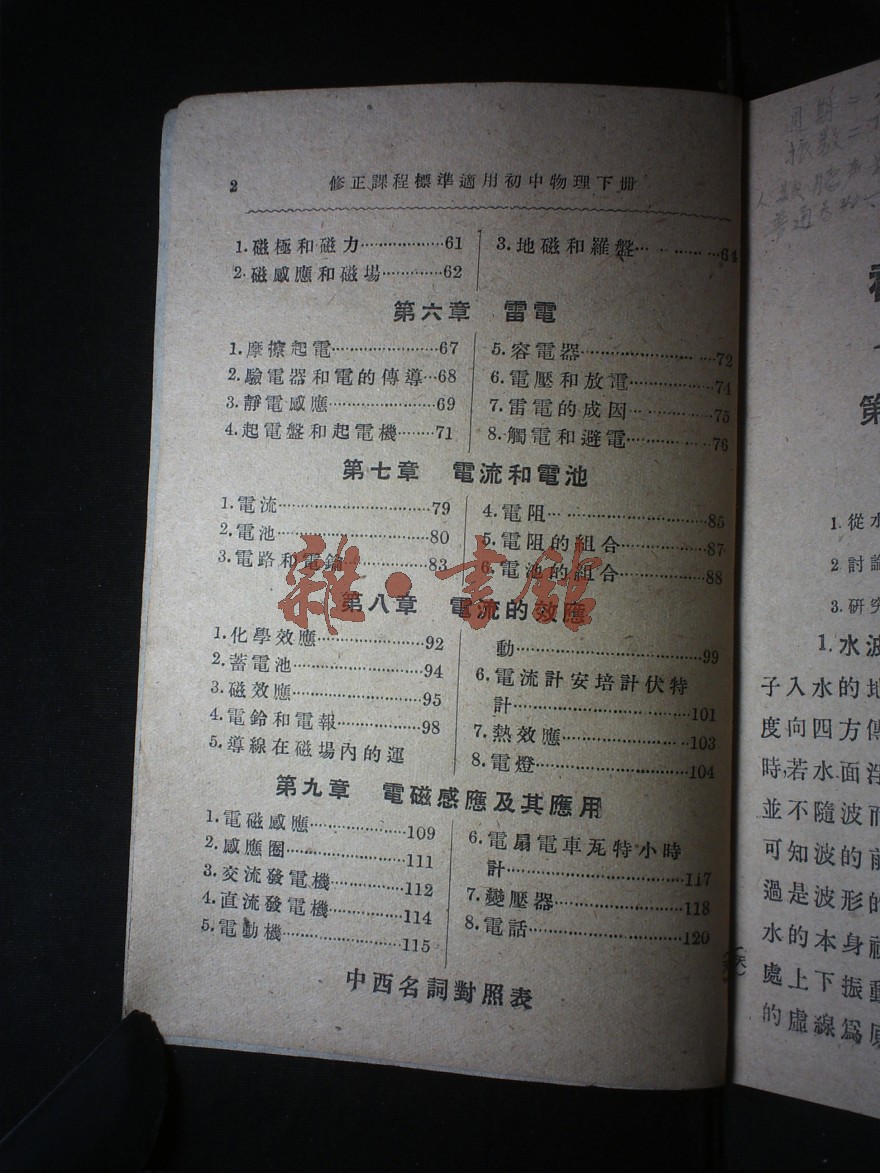 2 修正課程標準適用初中物理下册
1.磁極和磁力………………61
2.磁感應和磁場…………62
3.地磁和羅盤………………64
第六章 雷電
1.摩擦起電…………………67
2.驗電器和電的傳導…68
3.靜電感應…………………69
4.起電盤和起電機………71
5.容電器……………………72
6.電壓和放電………………74
7.雷電的成因………………75
8.觸電和避電………………76
第七章 電流和電池
1.電流………………………79
2.電池………………………80
3.電路和電鑰………………83
4.電阻………………………85
5.電阻的組合………………87
6.電池的組合………………88
雜·書館
第八章 電流的效應
1.化學效應…………………92
2.蓄電池……………………94
3.磁效應……………………95
4.電鈴和電報………………98
5.導線在磁場內的運
動……………………………99
6.電流計安培計伏特
計……………………………101
7.熱效應……………………103
8.電燈………………………104
第九章 電磁感應及其應用
1.電磁感應…………………109
2.感應圈……………………111
3.交流發電機………………112
4.直流發電機………………114
5.電動機……………………115
6.電扇電車瓦特小時
計……………………………117
7.變壓器……………………118
8.電話………………………120
中西名詞對照表
第
1.從水
2.討論
3.研究
1.水波
子入水的地
度向四方傳
時,若水面浮
並不隨波而
可知波的前
過是波形的
水的本身祇
處上下振動
的虛線爲原